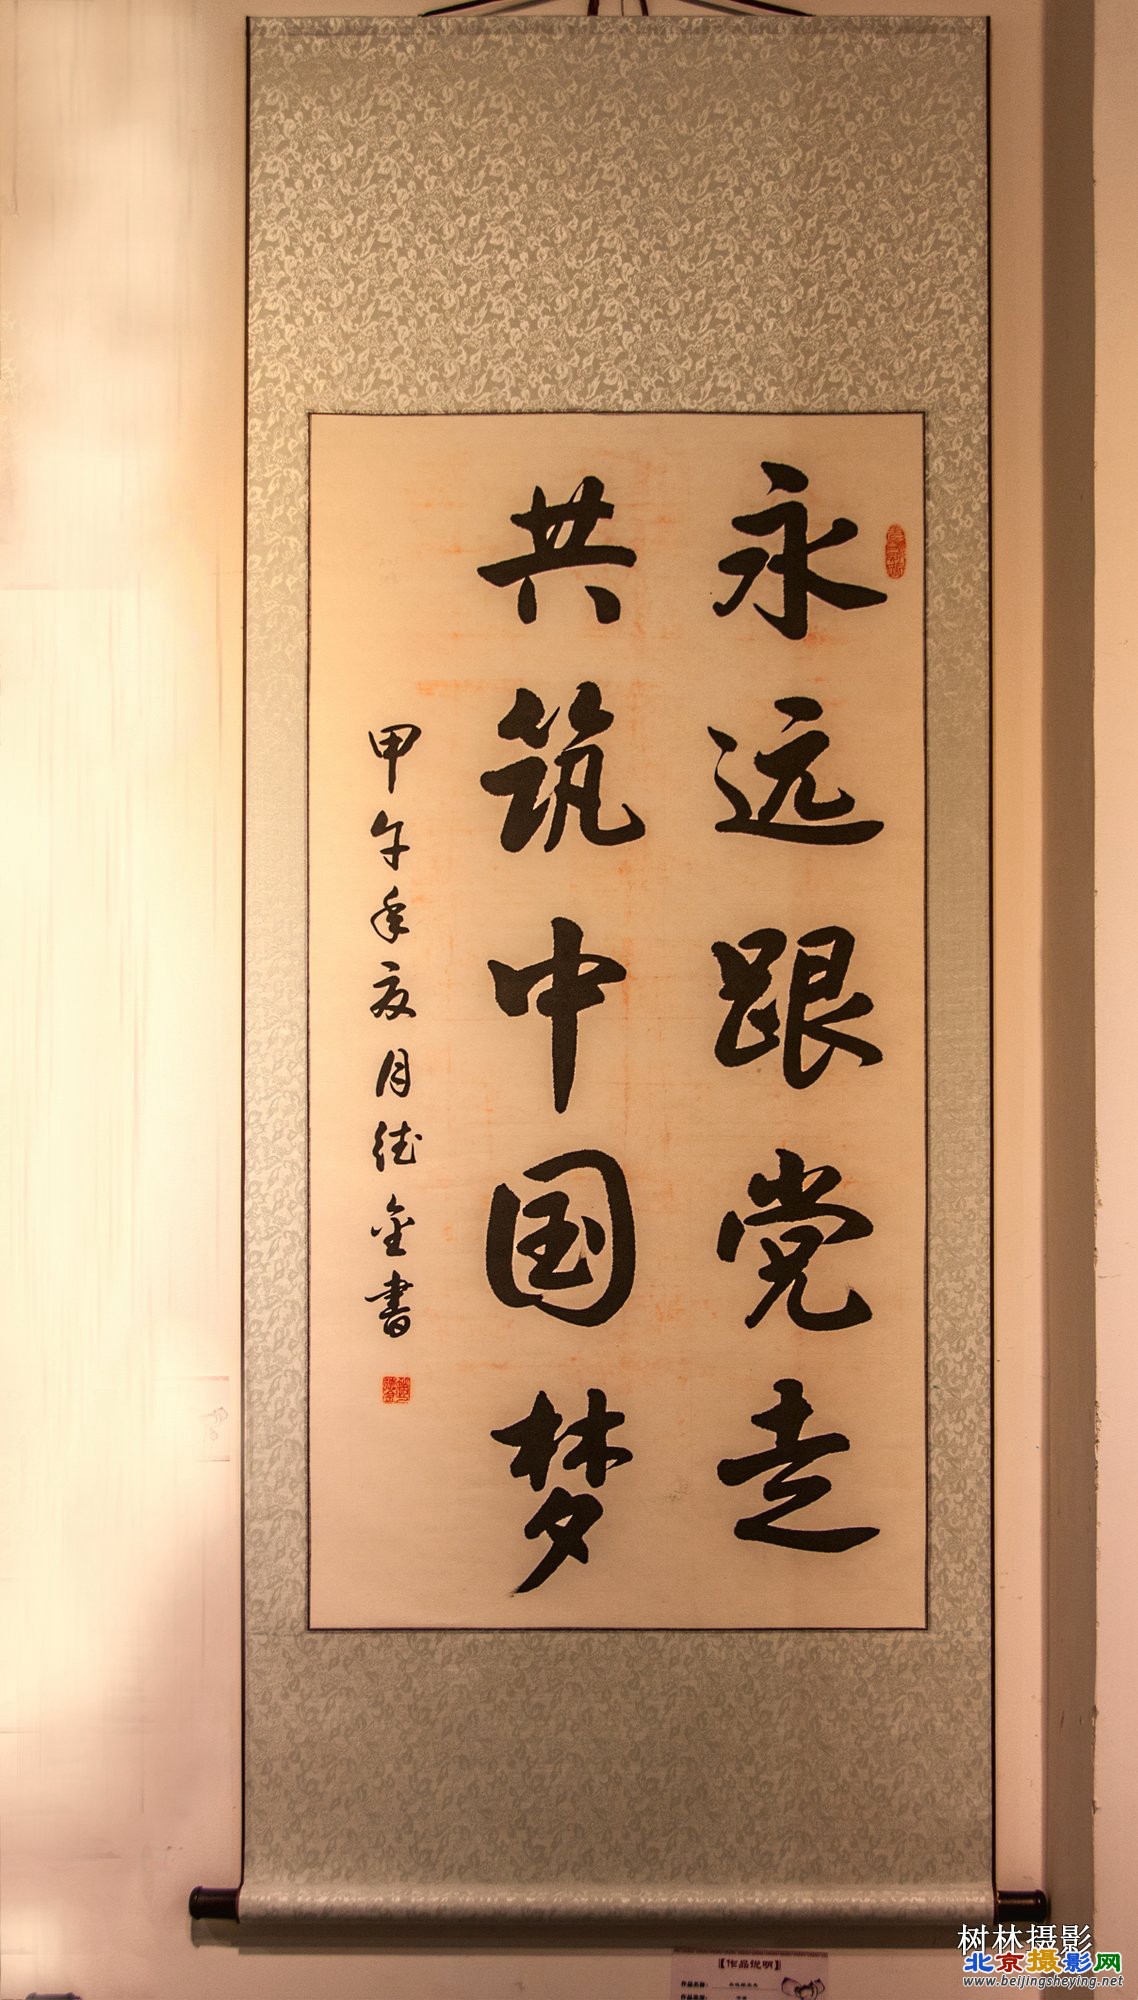 永远跟党走
共筑中国梦
甲午年夏月德金書
【作品说明】
作品名称：
树林摄影
北京摄影网
www.beijingsheying.net